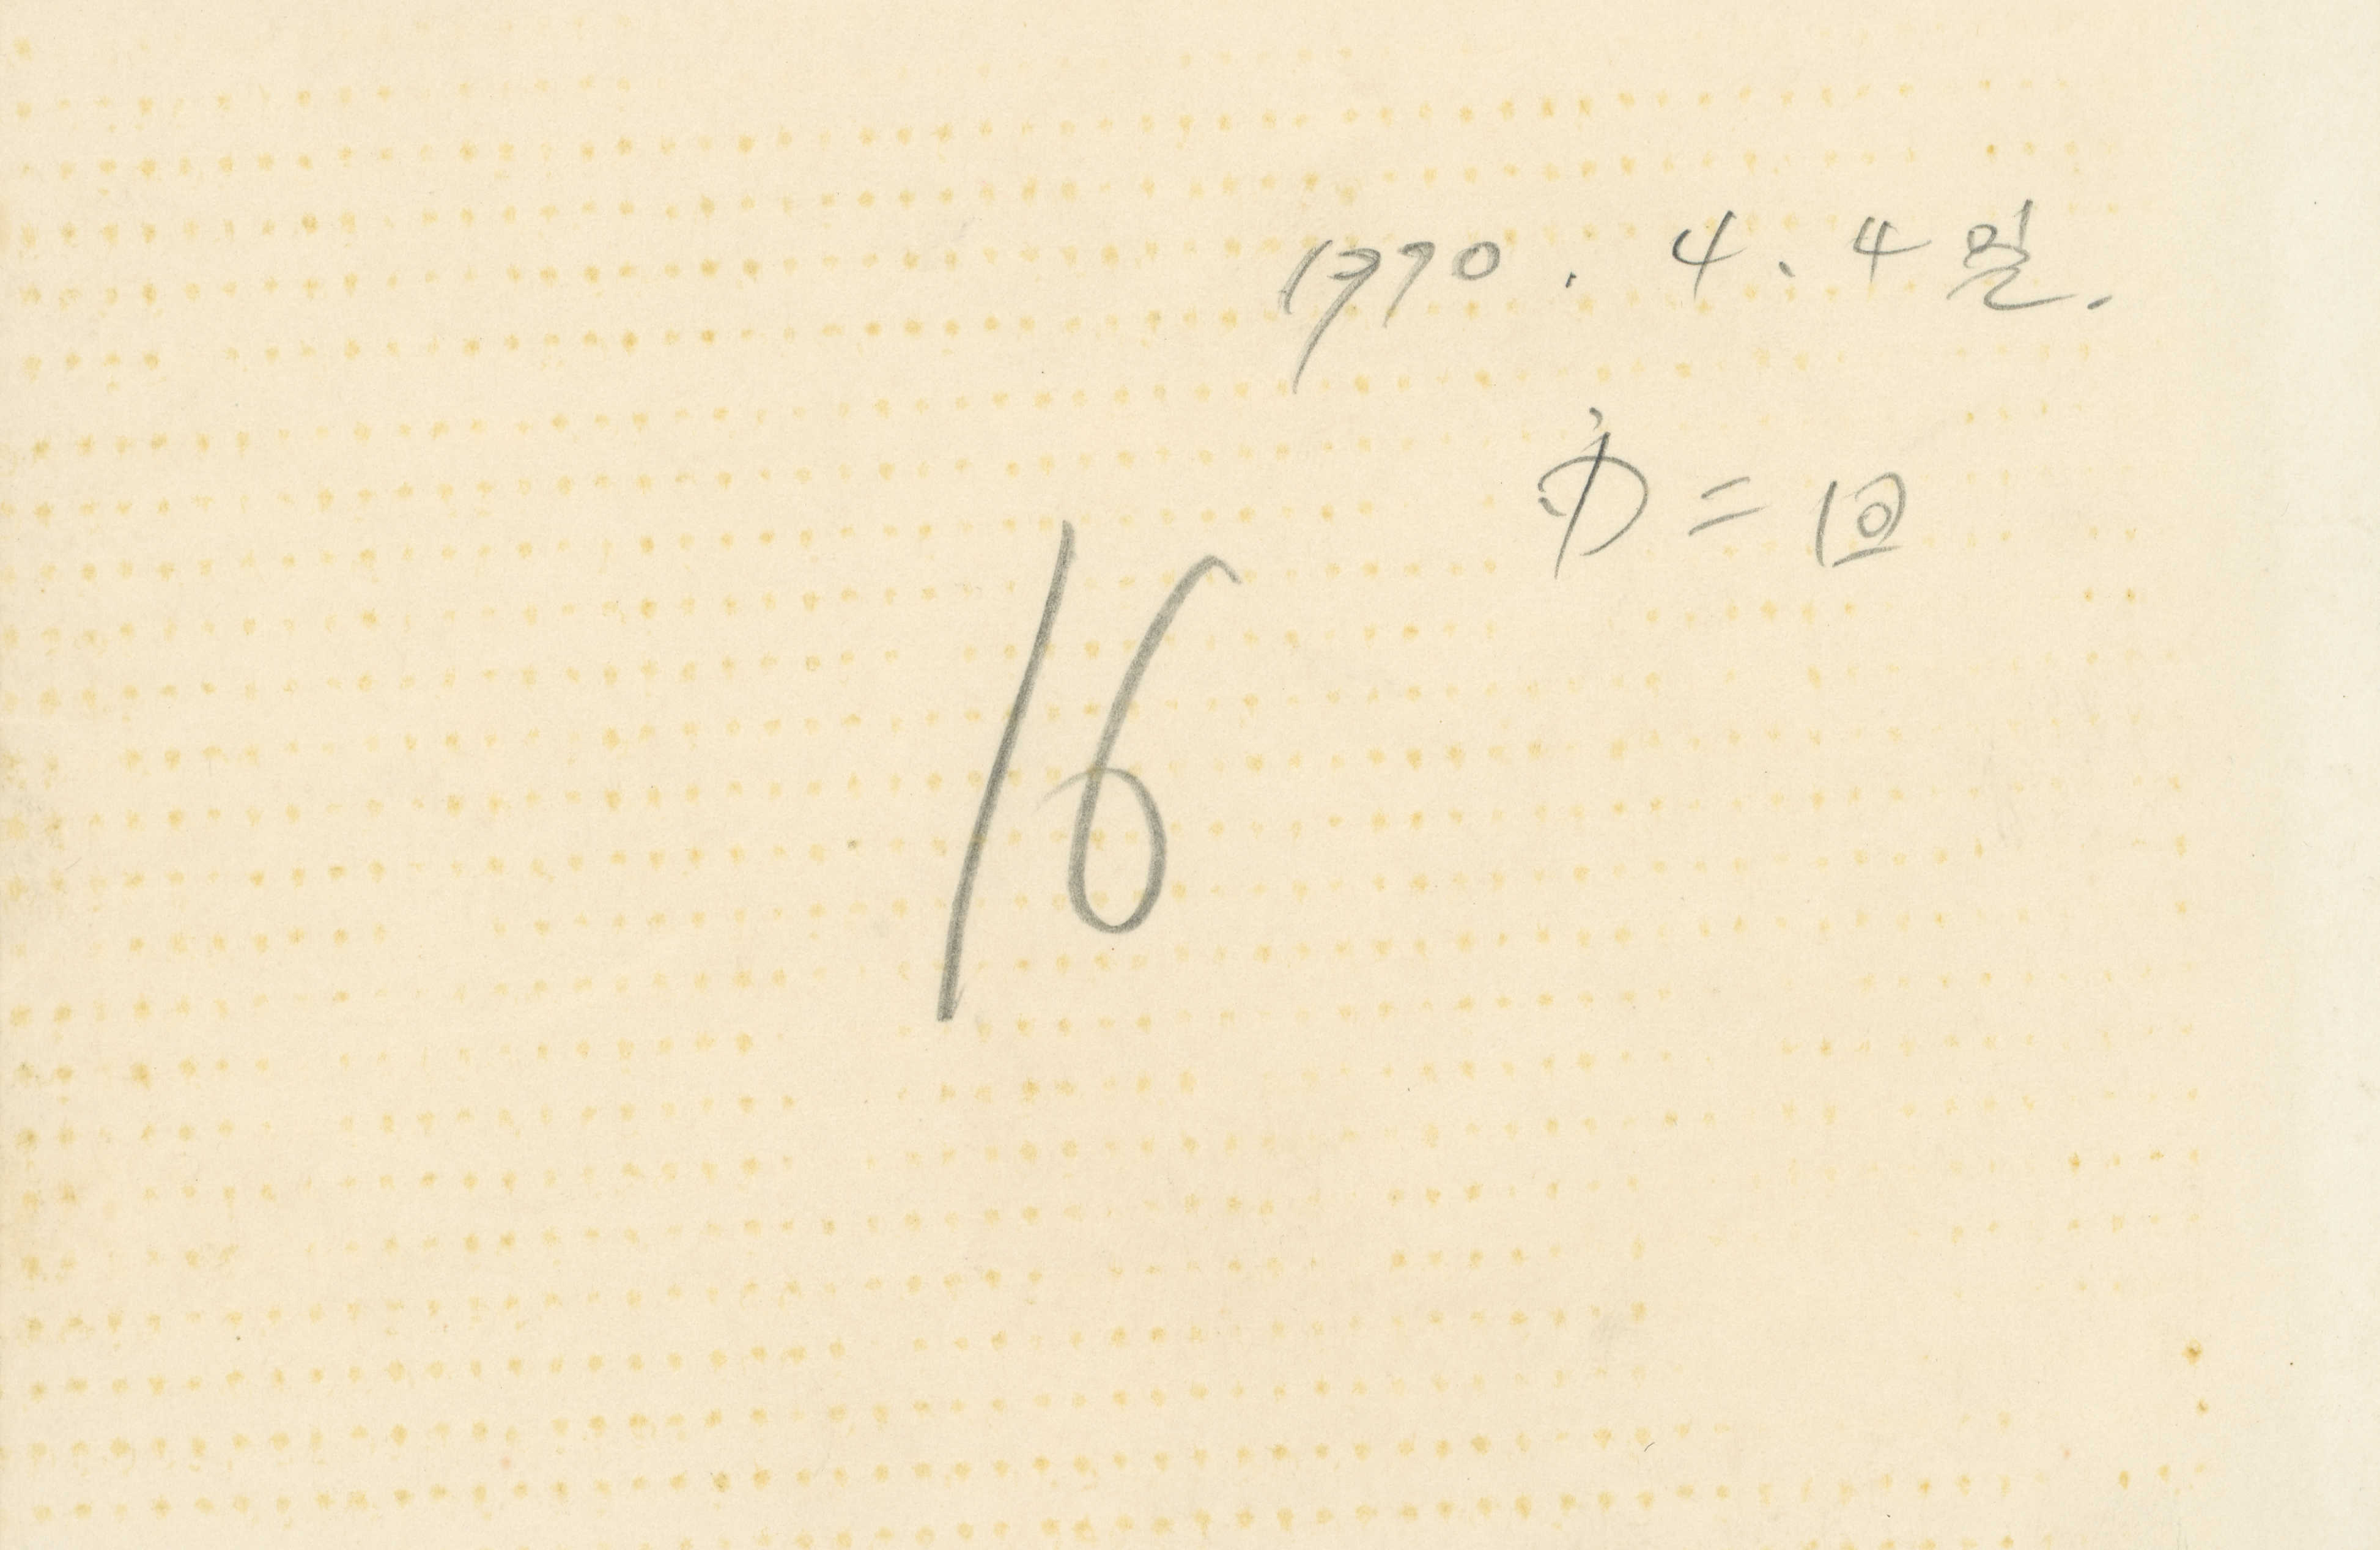 1970. 4. 4일.
中二回
16